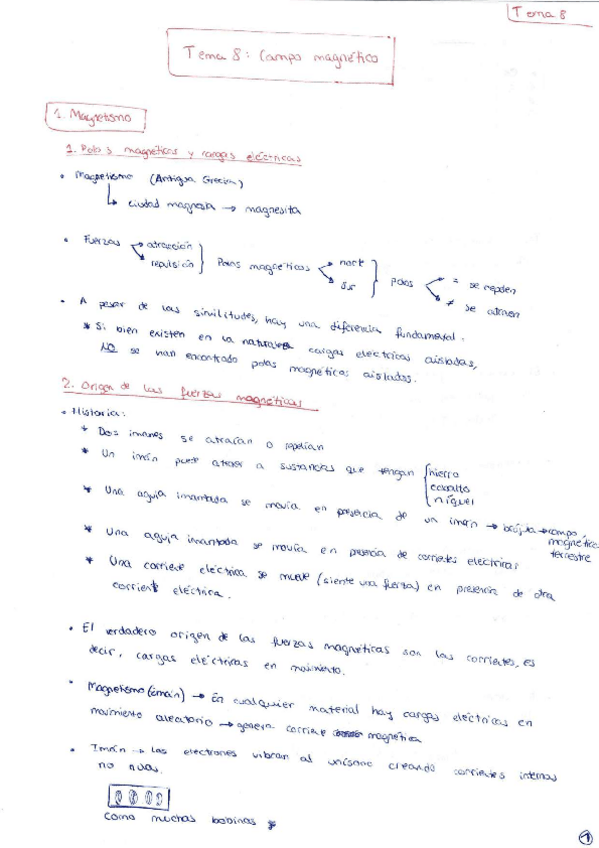 Tema 8
Tema 8: Campo magnético
1. Magnetismo
1. Polos magnéticos y cargas eléctricas
• Magnetismo (Antigua Grecia)
↳ ciudad magnesia → magnesita
• Fuerzas atracción repulsión } Polos magnéticos norte sur } polos = se repelen ≠ se atraen
• A pesar de las similitudes, hay una diferencia fundamental.
* Si bien existen en la naturaleza cargas eléctricas aisladas,
NO se han encontrado polos magnéticos aislados.
2. Origen de las fuerzas magnéticas
• Historia:
* Dos imanes se atraían o repelían
* Un imán puede atraer a sustancias que tengan { hierro cobalto níquel
* Una aguja imantada se movía en presencia de un imán → brújula → campo magnético terrestre
* Una aguja imantada se movía en presencia de corrientes eléctricas
* Una corriente eléctrica se mueve (siente una fuerza) en presencia de otra
corriente eléctrica.
• El verdadero origen de las fuerzas magnéticas son las corrientes, es
decir, cargas eléctricas en movimiento.
• Magnetismo → En cualquier material hay cargas eléctricas en
movimiento aleatorio → genera corriente magnética
• Imán → Los electrones vibran al unísono creando corrientes internas
no nulas.
como muchas bobinas
1